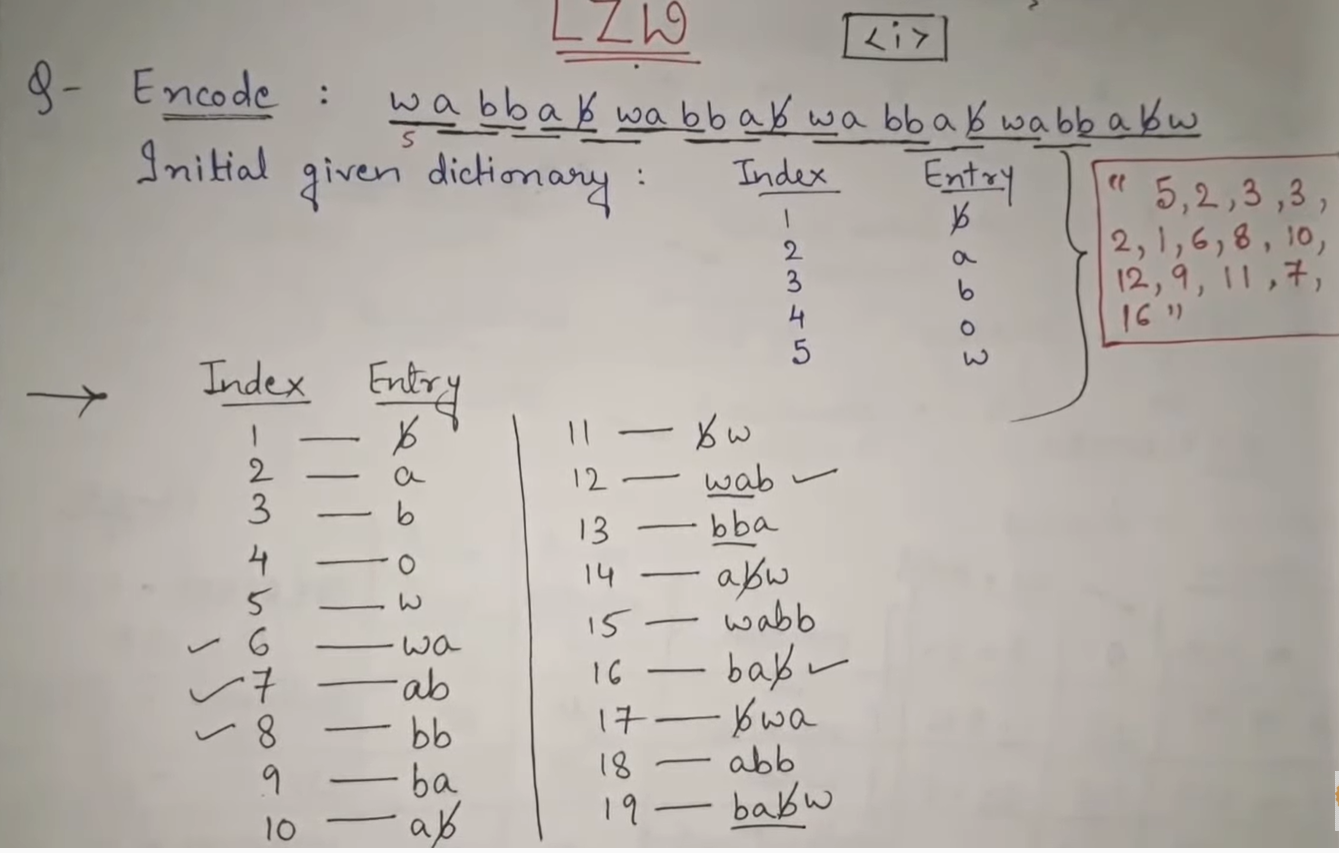 LZW
<i>
Q- Encode : wabbab̸wabbab̸wabbab̸wabbab̸w
5
Initial given dictionary : Index Entry
1 b̸
2 a
3 b
4 o
5 w
" 5,2,3,3,
2,1,6,8,10,
12,9,11,7,
16 "
→ Index Entry
1 — b̸
2 — a
3 — b
4 — o
5 — w
✓ 6 — wa
✓ 7 — ab
✓ 8 — bb
9 — ba
10 — ab̸
11 — b̸w
12 — wab ✓
13 — bba
14 — ab̸w
15 — wabb
16 — bab̸ ✓
17 — b̸wa
18 — abb
19 — bab̸w